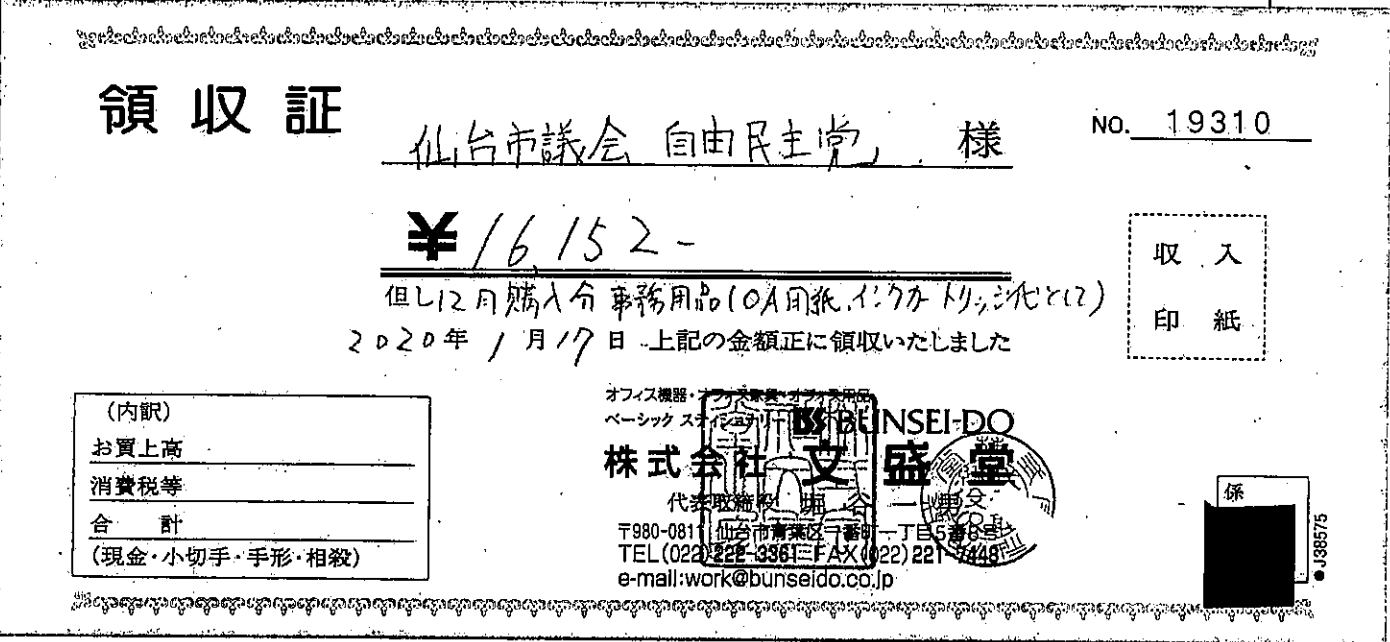 領収証
仙台市議会 自由民主党 様
NO. 19310
¥16,152-
但し12月購入分 事務用品(OA用紙、インクカートリッジ代として)
2020年1月17日 上記の金額正に領収いたしました
収入
印紙
(内訳)
お買上高
消費税等
合計
(現金・小切手・手形・相殺)
オフィス機器・オフィス家具・オフィス用品
ベーシック ステイショナリー BS BUNSEI-DO
株式会社 文盛堂
代表取締役 堀谷一男
〒980-0811 仙台市青葉区一番町一丁目5番8号
TEL(022)222-3361 FAX(022)221-7448
e-mail:work@bunseido.co.jp
係
●J38575